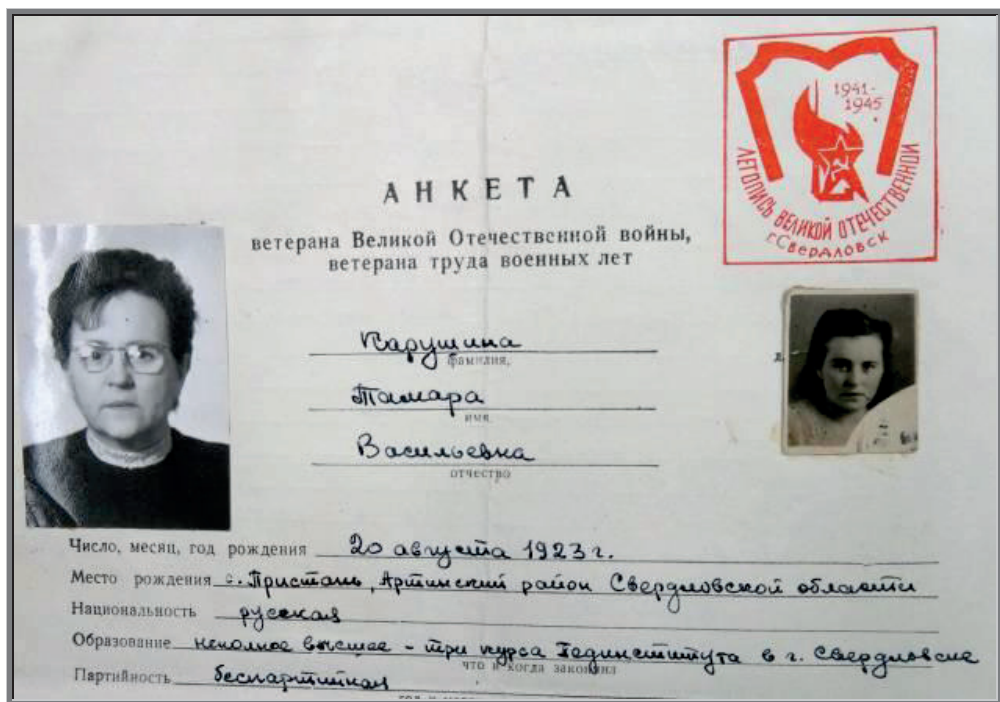 1941-
1945
ЛЕТОПИСЬ ВЕЛИКОЙ ОТЕЧЕСТВЕННОЙ
г. Свердловск
АНКЕТА
ветерана Великой Отечественной войны,
ветерана труда военных лет
Карушина
фамилия,
Тамара
имя,
Васильевна
отчество
Число, месяц, год рождения 20 августа 1923 г.
Место рождения с. Пристань, Артинский район Свердловской области
Национальность русская
Образование неполное высшее - три курса Пединститута в г. Свердловске
что и когда закончил
Партийность беспартийная